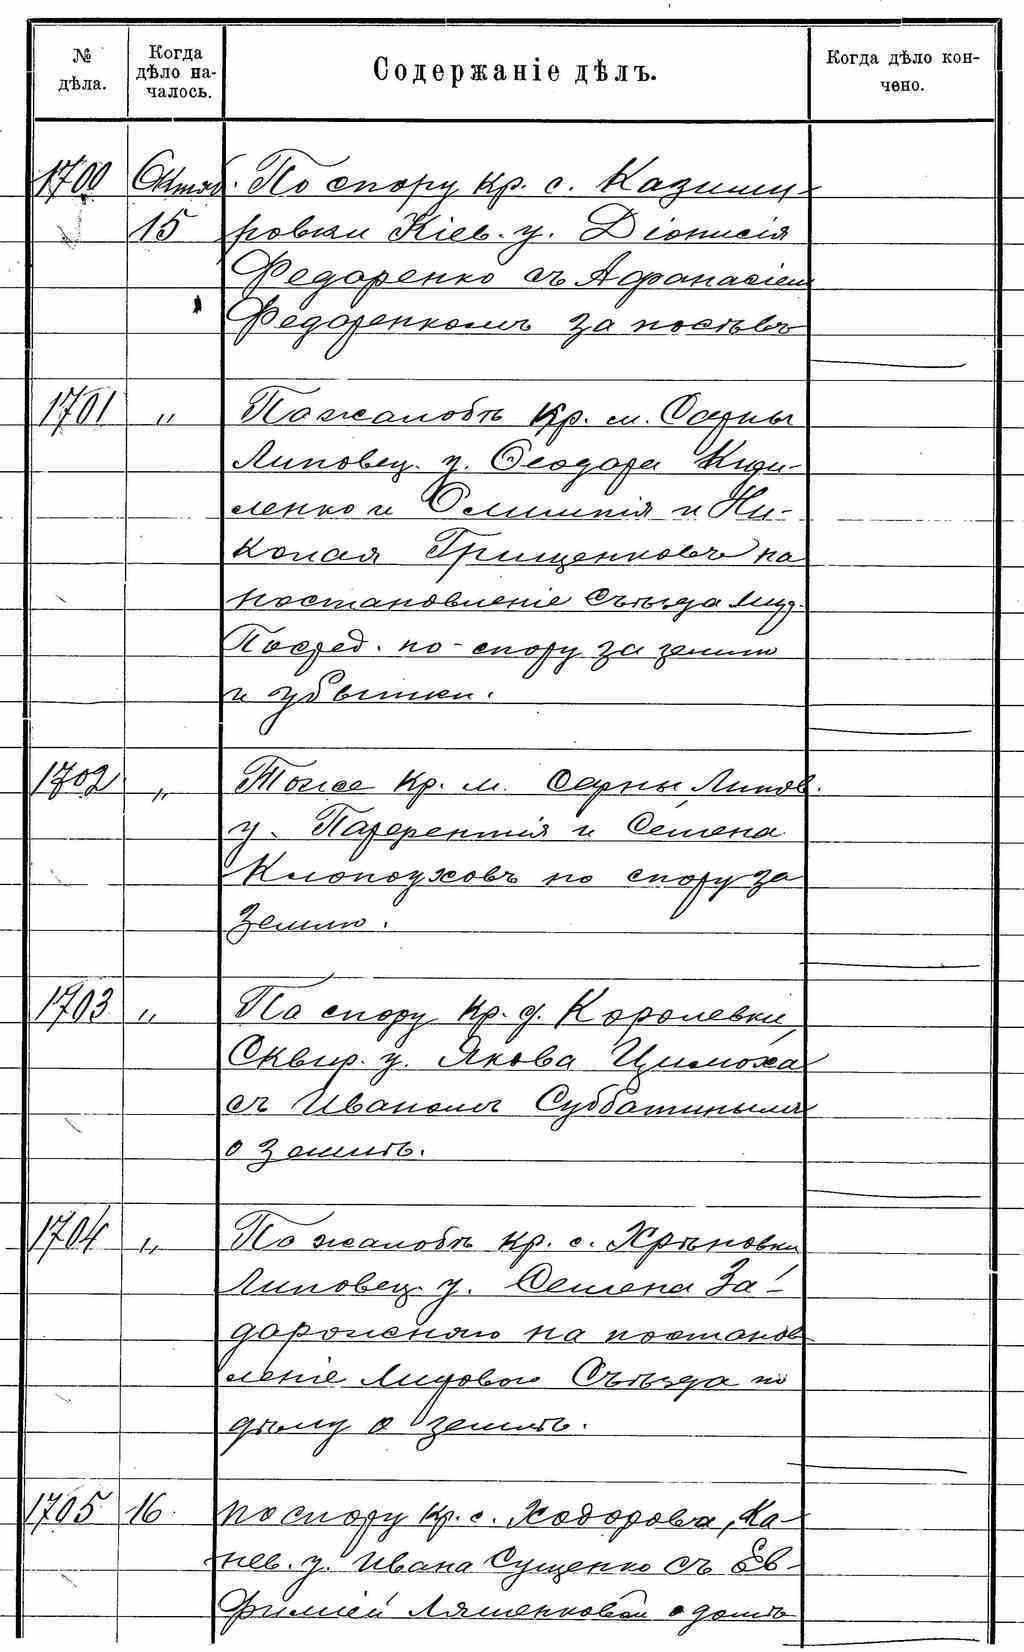 № дѣла.
Когда дѣло на-чалось.
Содержаніе дѣлъ.
Когда дѣло кон-чено.
1700 Октяб. По спору кр. с. Казими-
15 ровки Кіев. у. Діонисія
Федоренко съ Афанасіем
Федоренкомъ за посѣвъ
1701 „ По жалобѣ кр. м. Сарны
Липовец. у. Ѳеодора
ленко и Олимпія и Ни-
колая Грищенковъ на
постановленіе Съѣзда Мир.
Посред. по спору за землю
и убытки.
1702 „ Тоже кр. м. Сарны Липов.
у. Парфентія и Семена
Клопоуховъ по спору за
землю.
1703 „ По спору кр. д. Королевки,
Сквир. у. Якова Цимоха
съ Иваномъ Субботинымъ
о землѣ.
1704 „ По жалобѣ кр. с. Хрѣновки
Липовец. у. Семена За-
дорожняго на постанов-
леніе Мирового Съѣзда по
дѣлу о землѣ.
1705 16 По спору кр. с. Ходорова, Ка-
нев. у. Ивана Сущенко съ Ев-
фиміей Ляшенковой о домѣ